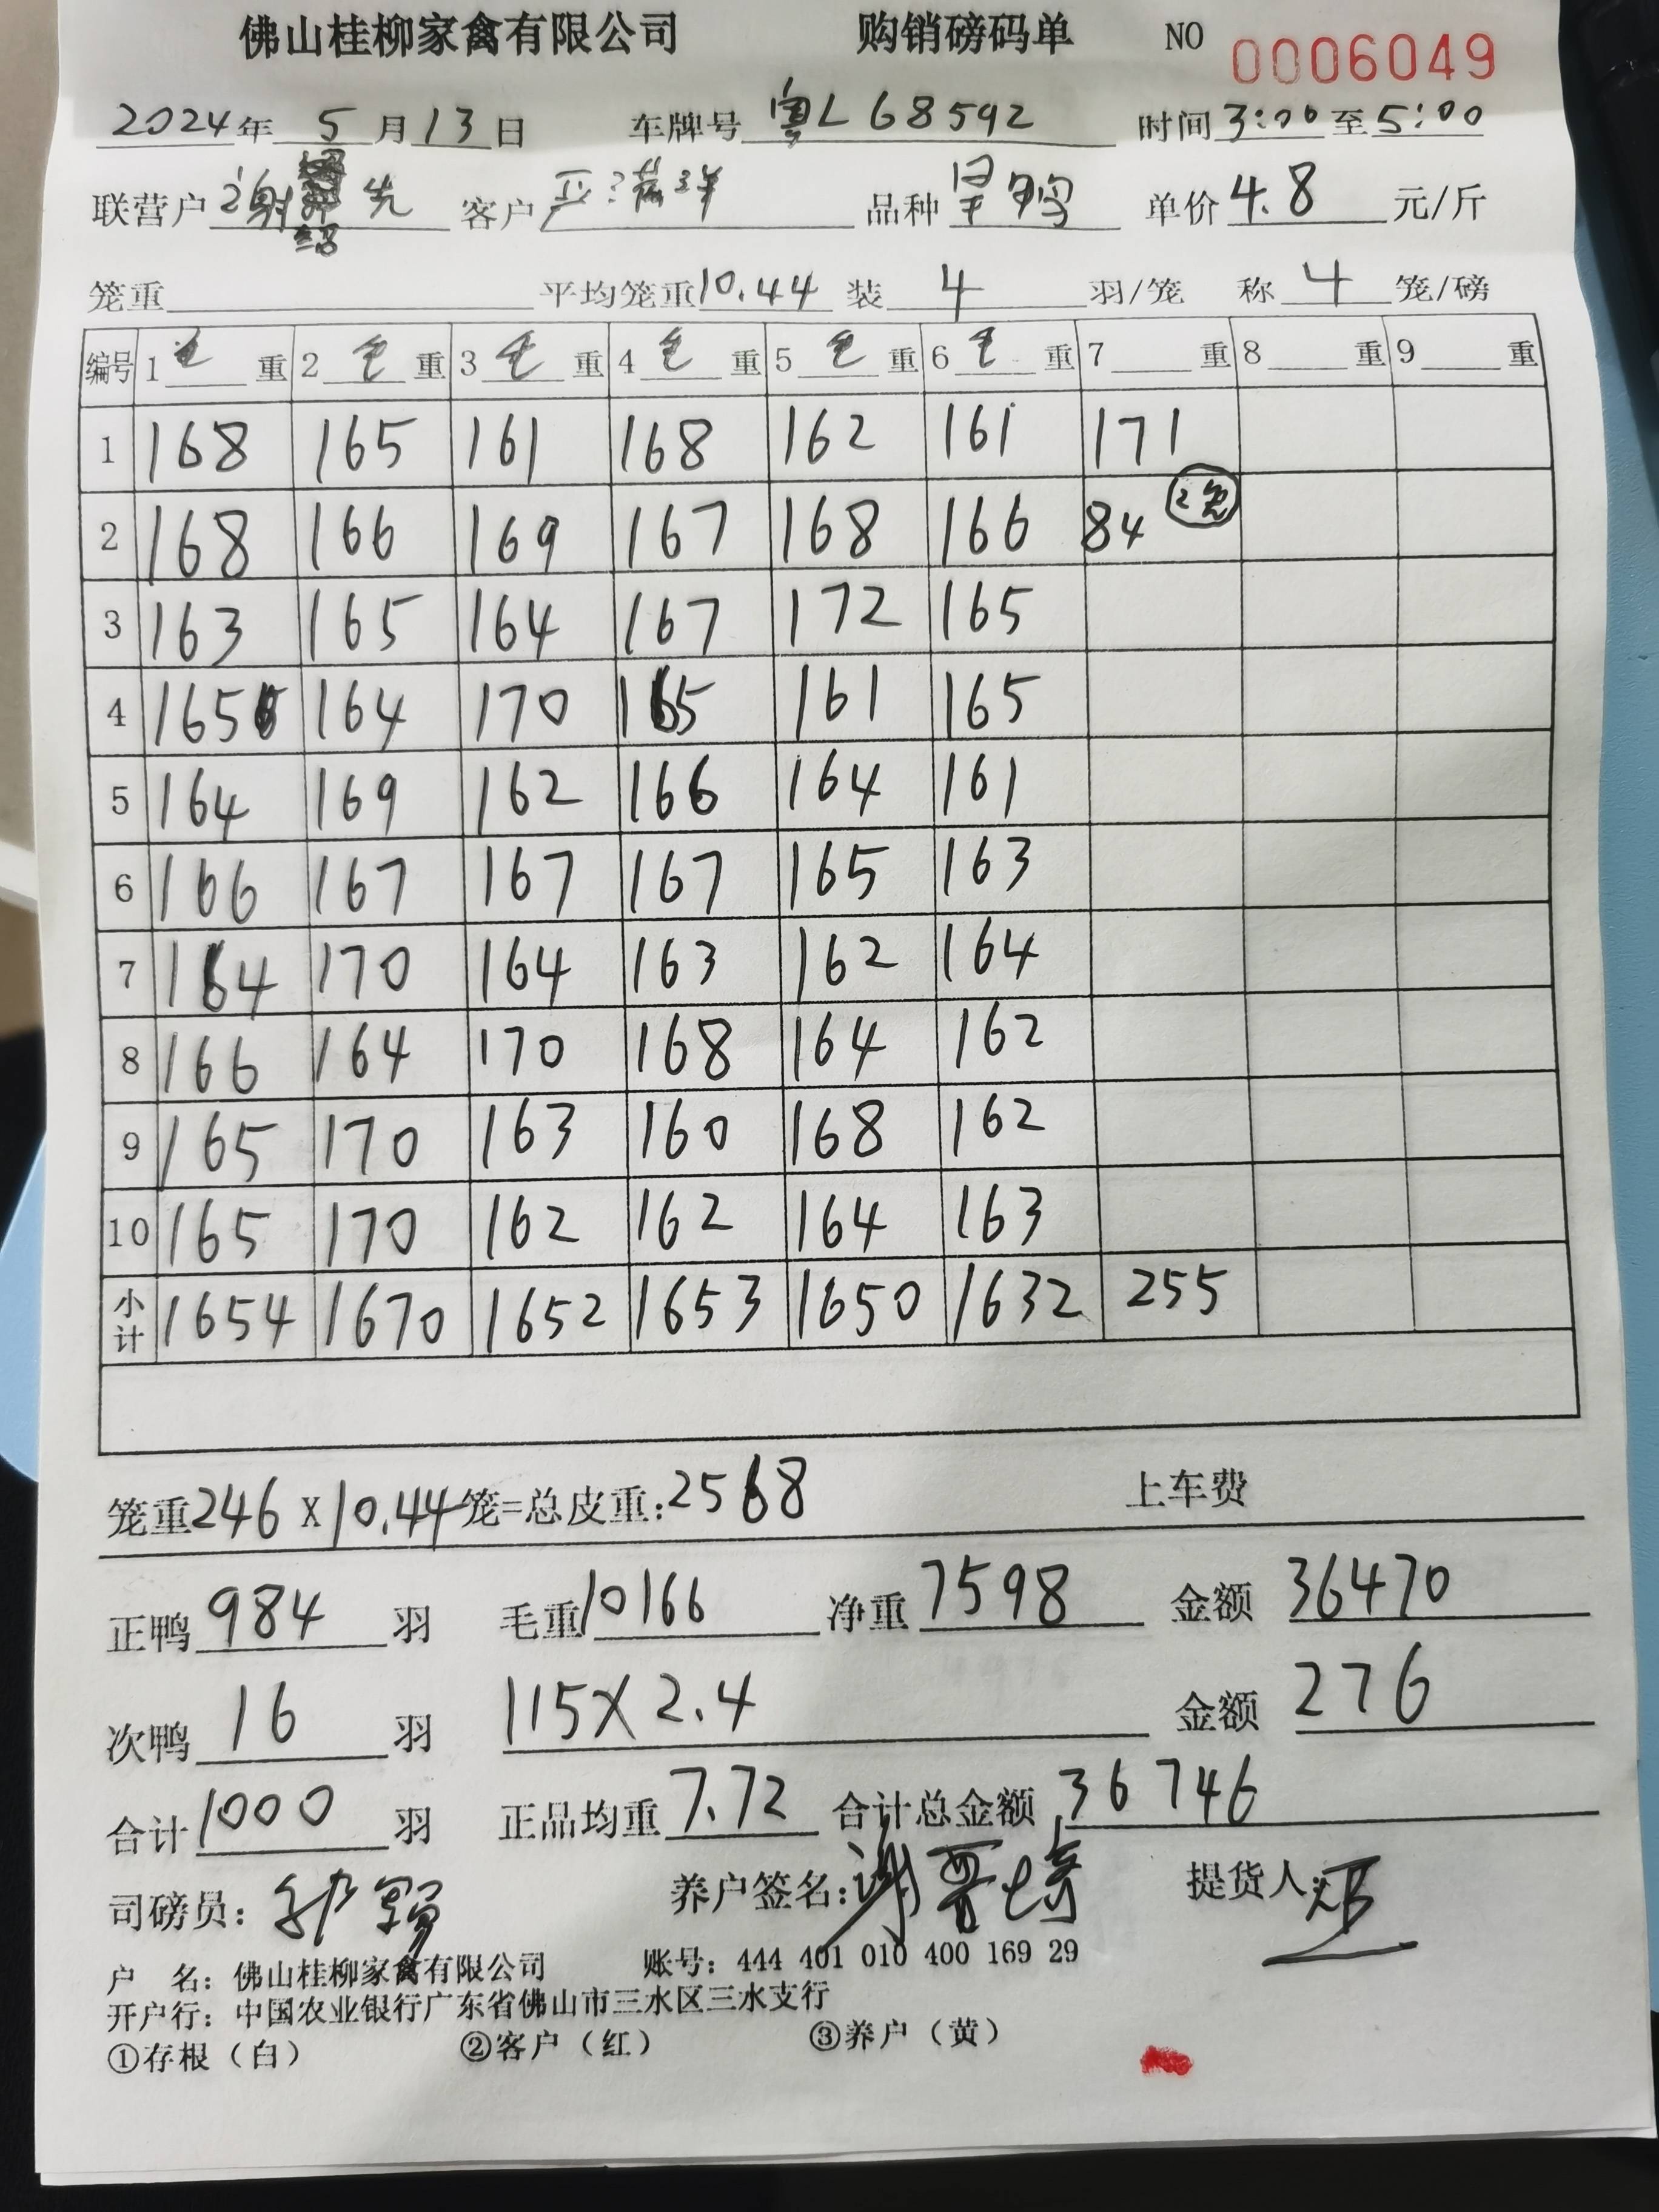 佛山桂柳家禽有限公司 购销磅码单 NO 0006049
2024年 5 月 13 日 车牌号 粤L 68592 时间 3:00 至 5:00
联营户 谢绍先 客户 品种 单价 4.8 元/斤
笼重 平均笼重 10.44 装 4 羽/笼 称 4 笼/磅
编号 1 毛 重 2 毛 重 3 毛 重 4 毛 重 5 毛 重 6 毛 重 7 重 8 重 9 重
1 168 165 161 168 162 161 171
2 168 166 169 167 168 166 84
3 163 165 164 167 172 165
4 165 164 170 165 161 165
5 164 169 162 166 164 161
6 166 167 167 167 165 163
7 164 170 164 163 162 164
8 166 164 170 168 164 162
9 165 170 163 160 168 162
10 165 170 162 162 164 163
小计 1654 1670 1652 1653 1650 1632 255
笼重 246 X 10.44 笼=总皮重: 2568 上车费
正鸭 984 羽 毛重 10166 净重 7598 金额 36470
次鸭 16 羽 115X2.4 金额 276
合计 1000 羽 正品均重 7.72 合计总金额 36746
司磅员: 养户签名: 提货人:
户 名: 佛山桂柳家禽有限公司 账号: 444 401 010 400 169 29
开户行: 中国农业银行广东省佛山市三水区三水支行
①存根(白) ②客户(红) ③养户(黄)